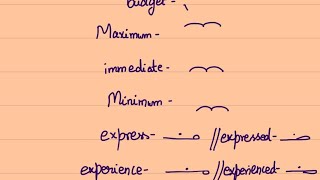 budget-
Maximum-
immediate-
Minimum-
express- //expressed-
experience- //experienced-